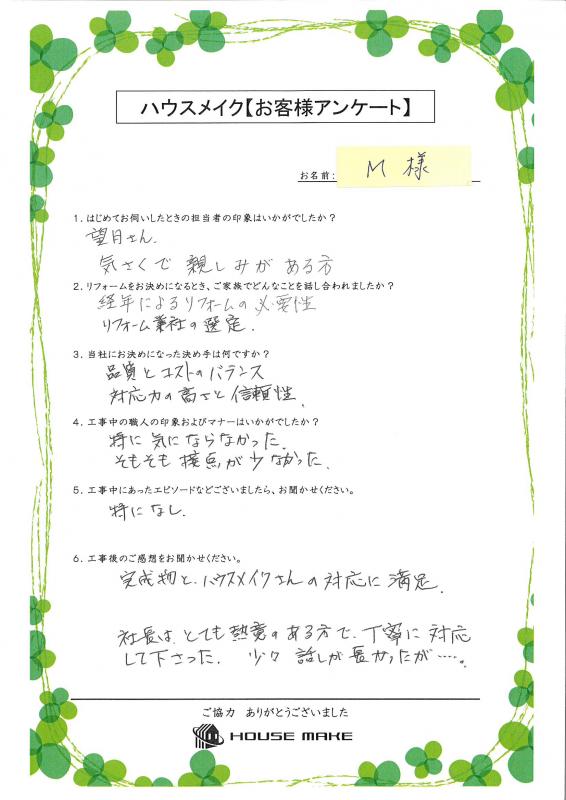 ハウスメイク【お客様アンケート】
お名前： M 様
1．はじめてお伺いしたときの担当者の印象はいかがでしたか？
望月さん.
気さくで 親しみが ある方
2．リフォームをお決めになるとき、ご家族でどんなことを話し合われましたか？
経年によるリフォームの必要性
リフォーム業社の選定.
3．当社にお決めになった決め手は何ですか？
品質とコストのバランス
対応力の高さと信頼性.
4．工事中の職人の印象およびマナーはいかがでしたか？
特に気にならなかった.
そもそも 接点が少なかった.
5．工事中にあったエピソードなどございましたら、お聞かせください。
特になし.
6．工事後のご感想をお聞かせください。
完成物と、ハウスメイクさんの対応に満足.
社長は とても 熱意のある方で、丁寧に対応
して下さった. 少々 話しが長かったが……。
ご協力 ありがとうございました
HOUSE MAKE